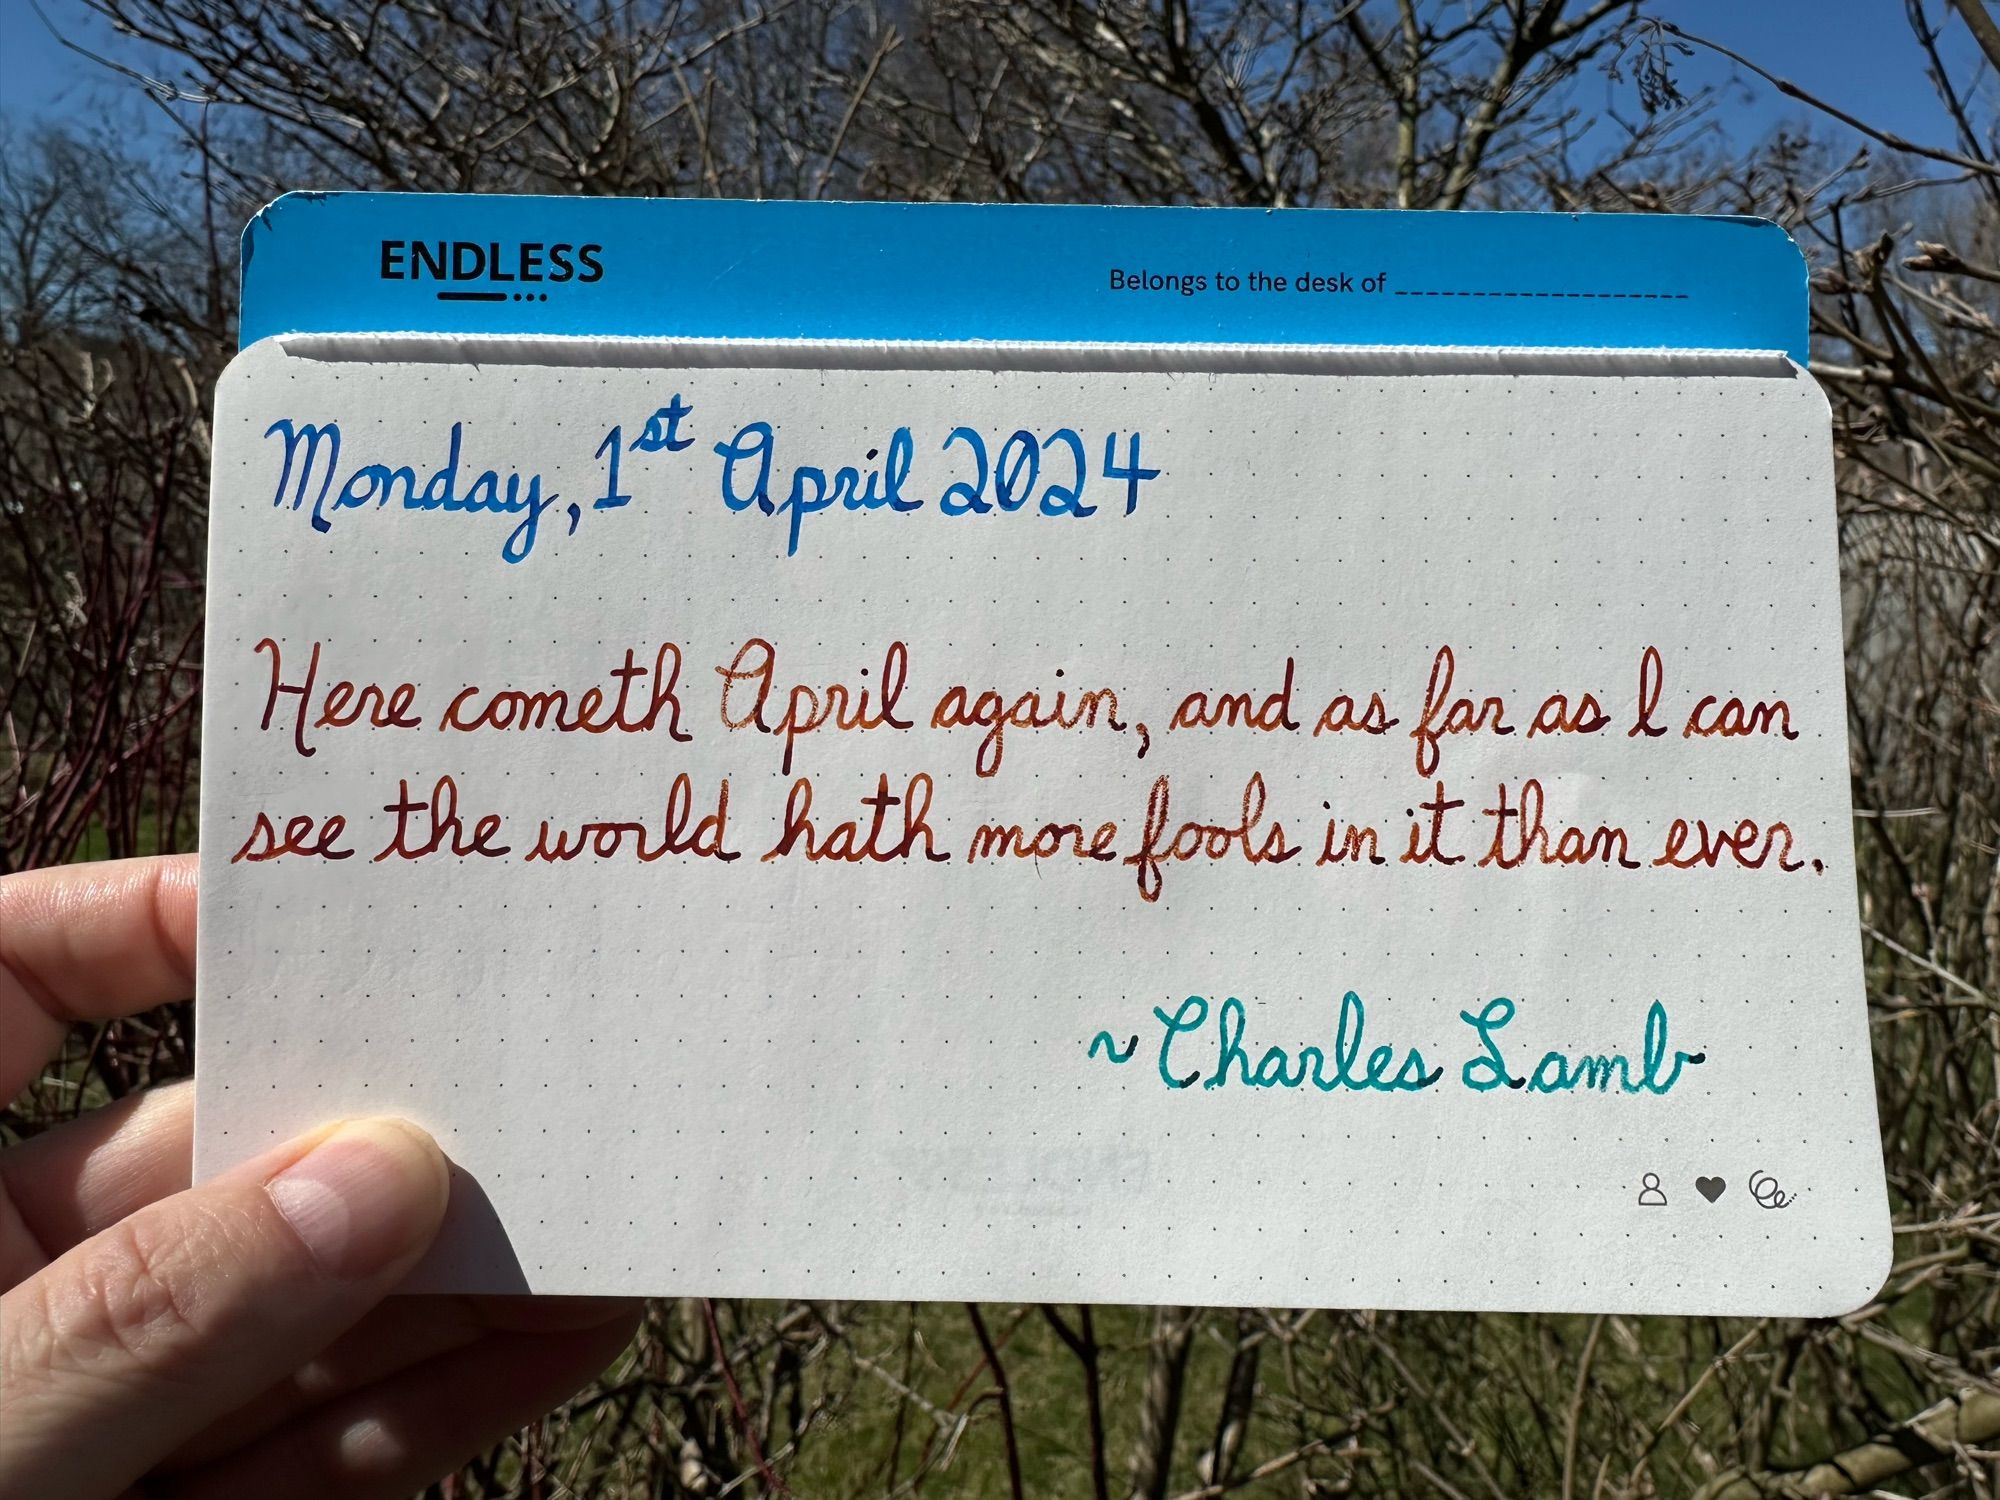 ENDLESS
Belongs to the desk of ___________________
Monday, 1st April 2024
Here cometh April again, and as far as I can
see the world hath more fools in it than ever.
~Charles Lamb